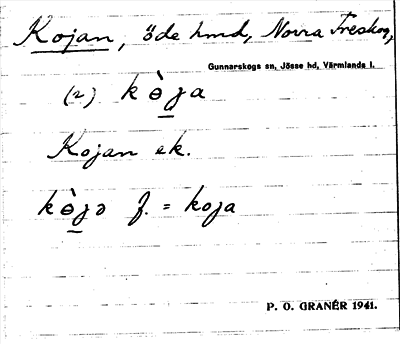 Kojan, öde hmd, Norra Treskog,
Gunnarskogs sn, Jösse hd, Värmlands l.
(2) kɵ̀ja
Kojan ek.
kɵ̀jə f. = koja
P. O. GRANÉR 1941.